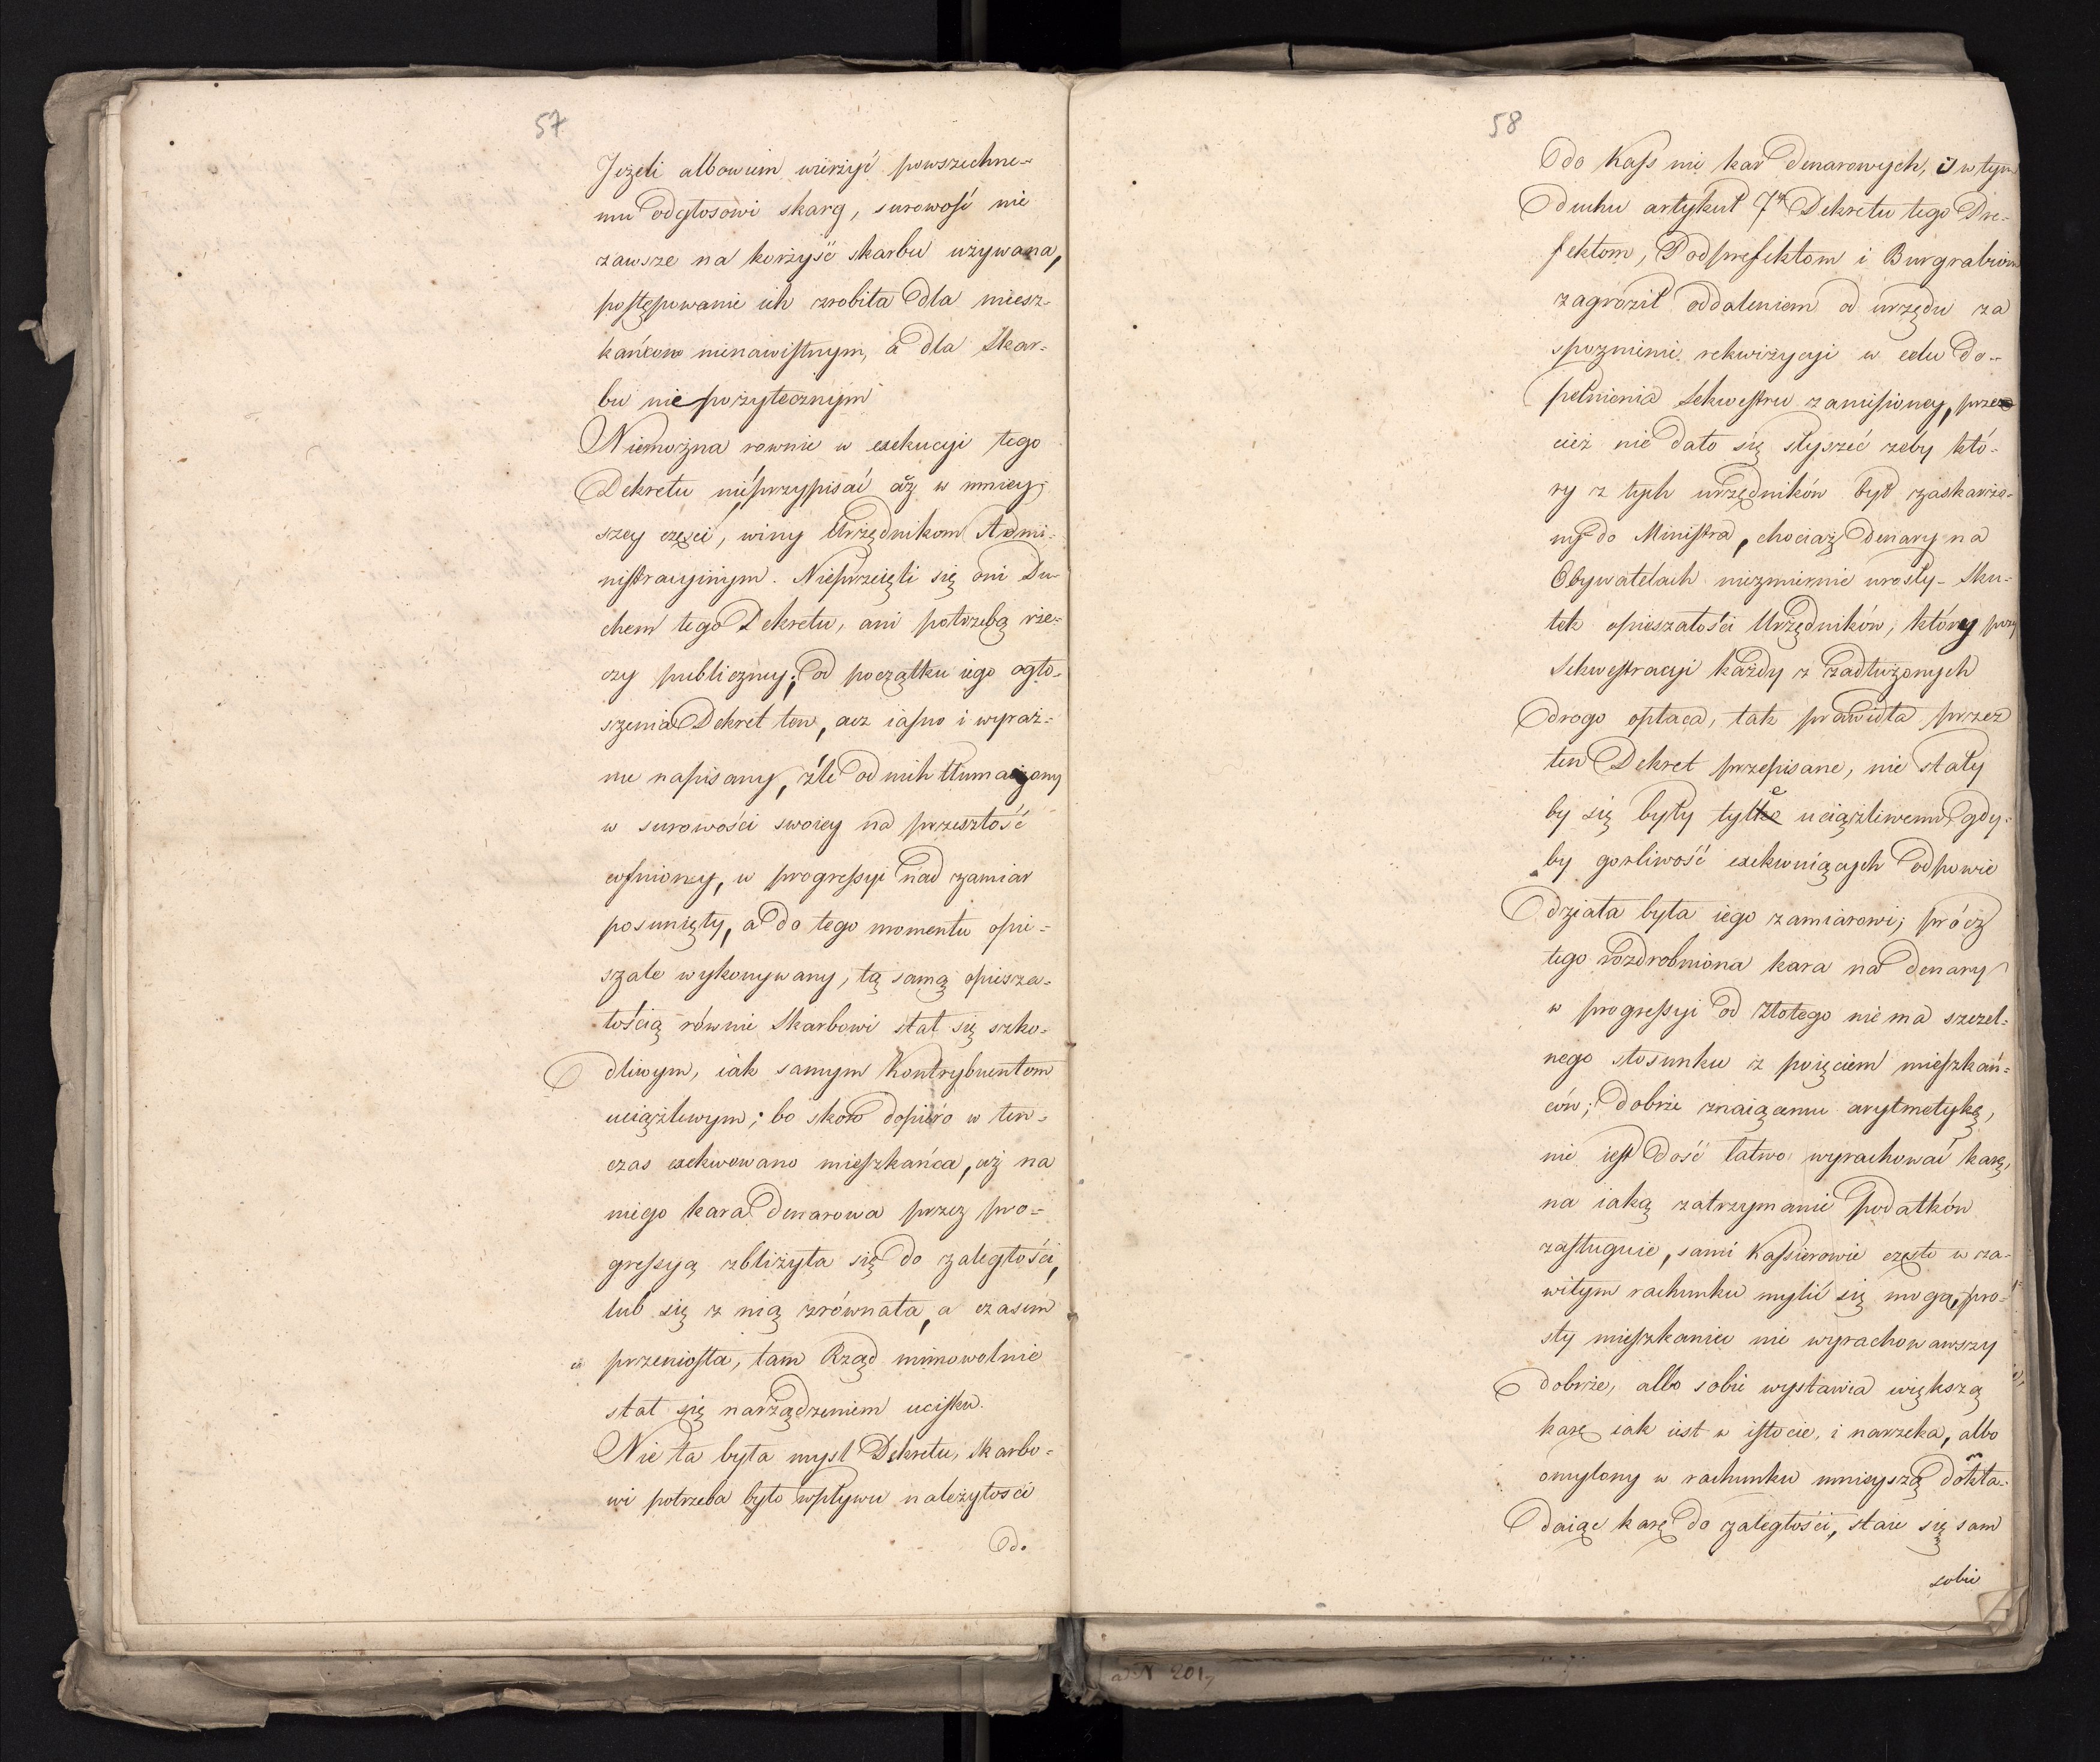 57
Jeżeli albowiem wierzyć powszechne-
mu odgłosowi skarg, surowość nie
zawsze na korzyść skarbu używana,
postępowanie ich zrobiła dla miesz-
kańcow nienawistnym, a dla Skar-
bu niepożytecznym
Niemożna rownie w exekucyi tego
Dekretu nieprzypisać aż w mniey-
szey części, winy Urzędnikom Admi-
nistracyinym. Nieprzeięli się oni Du-
chem tego Dekretu, ani potrzebą rze-
czy publiczney; od początku iego ogło-
szenia Dekret ten, acz iasno i wyraź-
nie napisany, źle od nich tłumaczony
w surowości swoiey na przeszłość
cofniony, w progressyi nad zamiar
posunięty, a do tego momentu opie-
szale wykonywany, tą samą opiesza-
łością równie Skarbowi stał się szko-
dliwym, iak samym Kontrybuentom
uciążliwym; bo skoro dopiéro w ten-
czas exekwowano mieszkańca, aż na
niego kara denarowa przez pro-
gressyą zbliżyła się do zaległości,
lub się z nią zrównała, a czasem
przeniosła, tam Rząd mimowolnie
stał się narządzeniem ucisku.
Nie ta była mysl Dekretu, Skarbo-
wi potrzeba było wpływu należytosci
do
58
do Kass nie kar denarowych, i w tym
duchu artykuł 7y Dekretu tego Pre-
fektom, Podprefektom i Burgrabiom
zagroził oddaleniem od urzędu za
spoznienie rekwizycyi w celu do-
pełnienia Sekwestru zaniesioney, prze
cież nie dało się słyszeć żeby któ-
ry z tych urzędników był zaskarżo-
ny do Ministra, chociaż denary na
Obywatelach niezmiernie urosły- Sku-
tek opieszałości Urzędników, który przy
Sekwestracyi każdy z zadłużonych
drogo opłaca, tak prawidła przez
ten Dekret przepisane, nie stały
by się były tyle uciążliwemi gdy-
by gorliwość exekwuiących odpowie
działa była iego zamiarowi; prócz
tego rozdrobniona kara na denary
w progressyi od złotego niema szczel-
nego stosunku z poięciem mieszkań-
ców; dobrze znaiącemu arytmetykę,
nie iest dość łatwo wyrachować karę,
na iaką zatrzymanie podatków
zasługuie, sami Kassierowie często w za-
wiłym rachunku mylić się mogą, pro-
sty mieszkaniec nie wyrachowawszy
dobrze, albo sobie wystawia większą
karę iak iest w istocie, i narzeka, albo
omylony w rachunku mnieyszą dokła-
daiąc karę do zaległości, staie się sam
sobie
ad N 201,